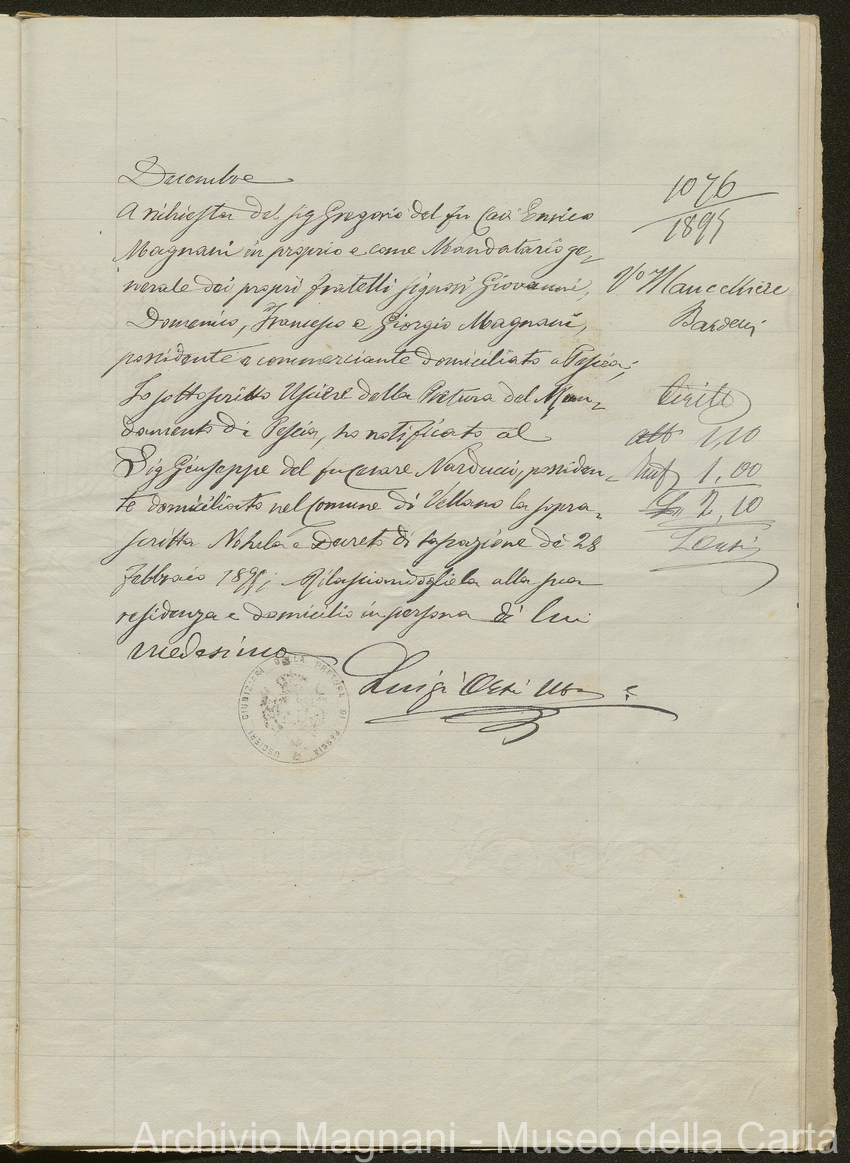 Decembre
A richiesta del sig Gregorio del fu Cav Enrico
Magnani in proprio e come Mandatario ge-
nerale dei propri fratelli signori Giovanni,
Domenico, Francesco e Giorgio Magnani,
possidente e commerciante domiciliato a Pescia;
Io sottoscritto Usciere della Pretura del Man-
damento di Pescia, ho notificato al
Sig Giuseppe del fu Cesare Narducci, possiden-
te domiciliato nel Comune di Vellano la sopra-
scritta Nohela e Decreto di tassazione de 28
Febbraio 1895; Rilasciandogliela alla sua
residenza e domicilio in persona di lui
medesimo
Luigi Orsi Us e
USCIERI GIUDIZIARI DELLA PRETURA DI PESCIA
1076
1895
Vo Il Cancelliere
Diritto
atto 1,10
1,00
L 2,10
Archivio Magnani - Museo della Carta